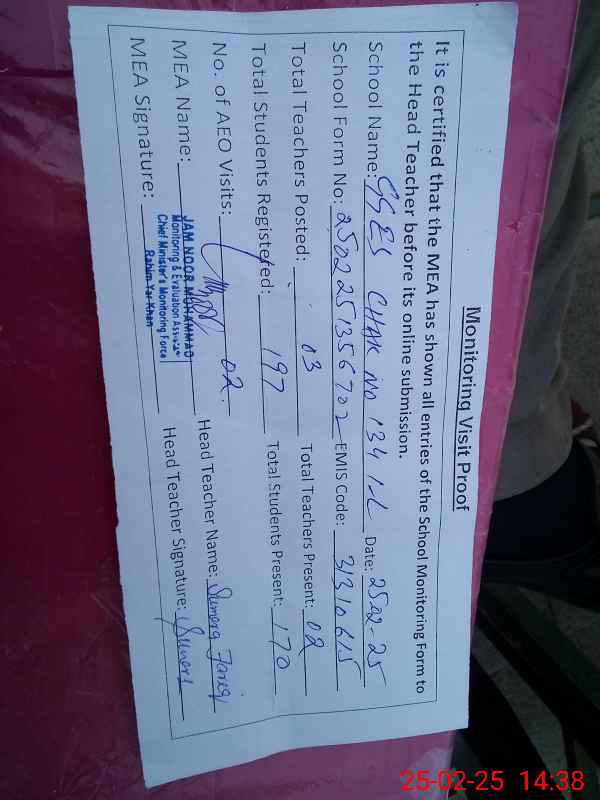 Monitoring Visit Proof
It is certified that the MEA has shown all entries of the School Monitoring Form to
the Head Teacher before its online submission.
School Name: GGES CHAK NO 134 1-L Date: 2502-25
School Form No: 2502251356702 EMIS Code: 31310615
Total Teachers Posted: 03 Total Teachers Present: 02
Total Students Registered: 197 Total Students Present: 170
No. of AEO Visits: 02.
MEA Name: JAM NOOR MUHAMMAD Head Teacher Name: Sumera Tariq
Monitoring & Evaluation Assistant
Chief Minister's Monitoring Force
Rahim Yar Khan
MEA Signature: Head Teacher Signature:
25-02-25 14:38